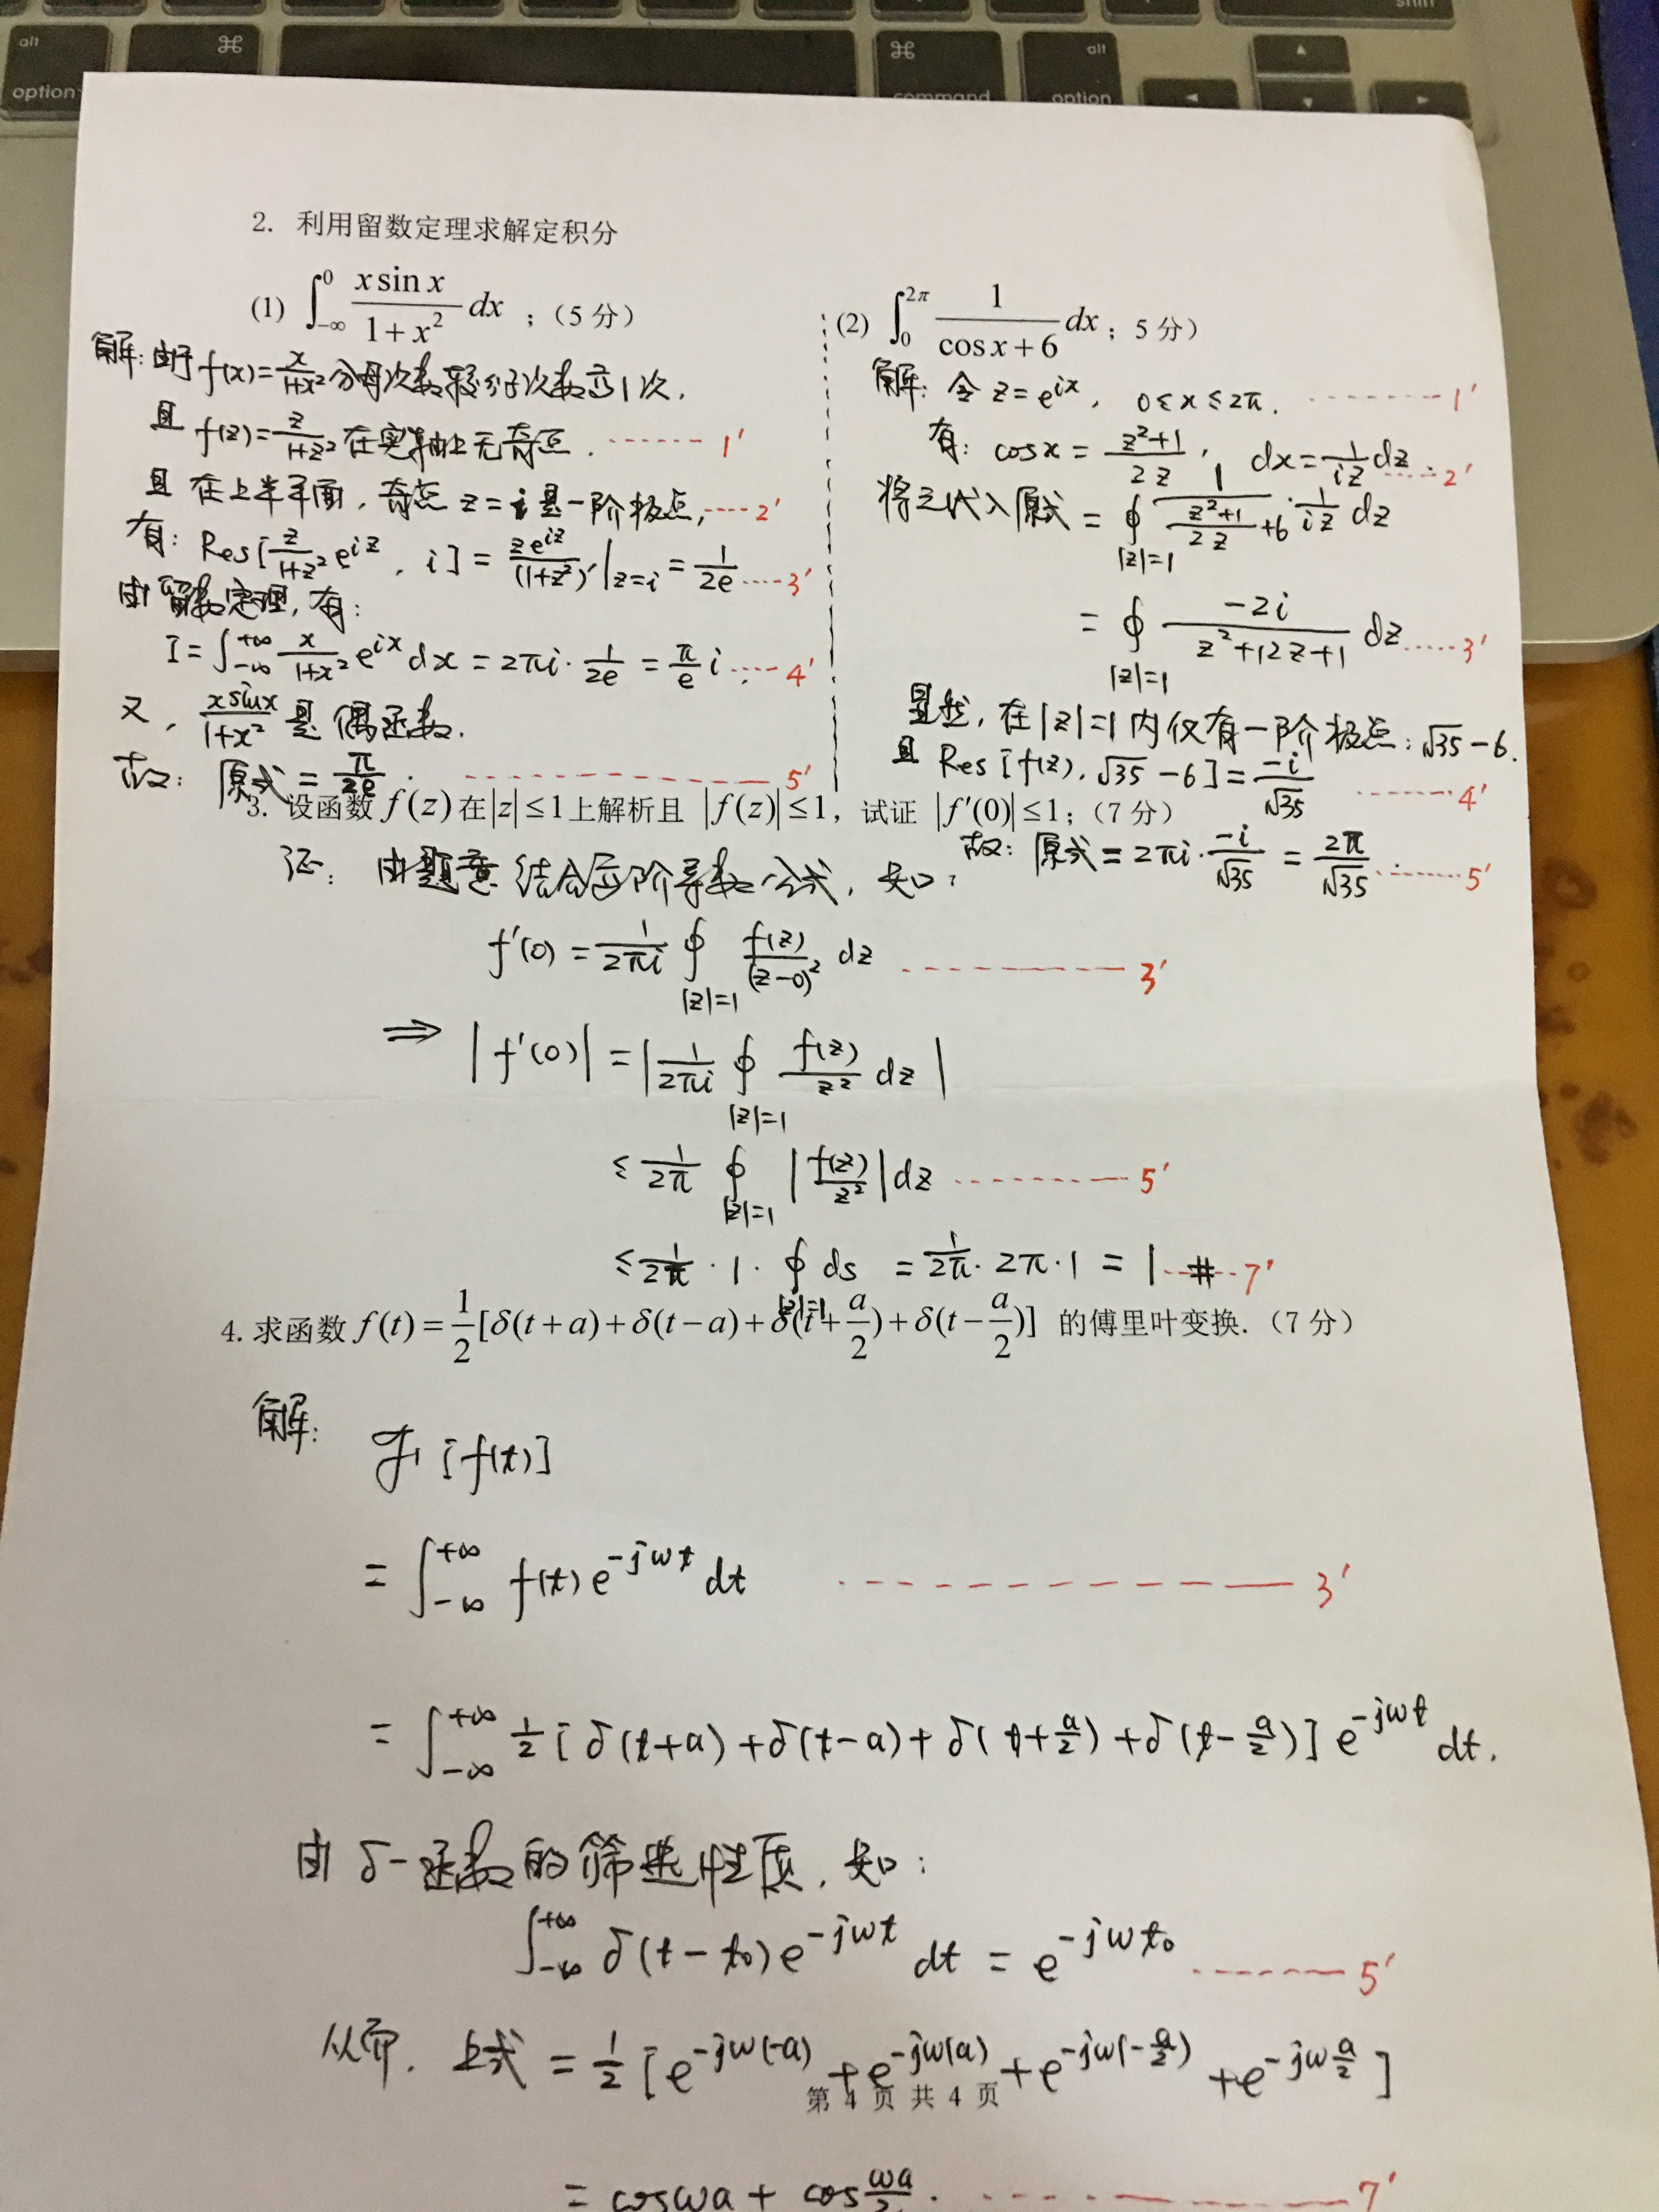 alt
option
⌘
⌘
command
alt
option
shift
2. 利用留数定理求解定积分
(1) ∫_{-∞}^{0} x sin x / (1+x²) dx ;（5 分）
解: 由于 f(x)=x/(1+x²) 分母次数较分子次数高1次.
且 f(z)=z/(1+z²) 在实轴上无奇点. 1′
且在上半平面, 奇点 z=i 是一阶极点, 2′
有: Res[z/(1+z²) e^{iz}, i] = ze^{iz}/(1+z²)′|_{z=i} = 1/(2e) 3′
由留数定理, 有:
I=∫_{-∞}^{+∞} x/(1+x²) e^{ix} dx = 2πi·1/(2e) = π/e i. 4′
又, x sin x/(1+x²) 是偶函数.
故: 原式 = π/(2e). 5′
(2) ∫_{0}^{2π} 1/(cos x+6) dx ; 5 分）
解: 令 z=e^{ix}, 0≤x≤2π. 1′
有: cosx = (z²+1)/(2z), dx = 1/(iz) dz. 2′
将之代入原式 = ∮_{|z|=1} 1/((z²+1)/(2z)+6) · 1/(iz) dz
= ∮_{|z|=1} -2i/(z²+12z+1) dz 3′
显然, 在|z|=1内仅有一阶极点: √35-6.
且 Res[f(z), √35-6] = -i/√35 4′
故: 原式 = 2πi·(-i)/√35 = 2π/√35. 5′
3. 设函数 f(z) 在|z|≤1上解析且 |f(z)|≤1，试证 |f′(0)|≤1;（7 分）
证: 由题意结合高阶导数公式, 知:
f′(0) = 1/(2πi) ∮_{|z|=1} f(z)/(z-0)² dz 3′
⇒ |f′(0)| = |1/(2πi) ∮_{|z|=1} f(z)/z² dz|
≤ 1/(2π) ∮_{|z|=1} |f(z)/z²| dz 5′
≤ 1/(2π) · 1 · ∮_{|z|=1} ds = 1/(2π) · 2π · 1 = 1 # 7′
4. 求函数 f(t) = 1/2[δ(t+a)+δ(t−a)+δ(t+a/2)+δ(t−a/2)] 的傅里叶变换.（7 分）
解: ℱ[f(t)]
= ∫_{-∞}^{+∞} f(t) e^{-jωt} dt 3′
= ∫_{-∞}^{+∞} 1/2 [δ(t+a)+δ(t-a)+δ(t+a/2)+δ(t-a/2)] e^{-jωt} dt.
由 δ-函数的筛选性质, 知:
∫_{-∞}^{+∞} δ(t-t₀) e^{-jωt} dt = e^{-jωt₀} 5′
从而. 上式 = 1/2 [e^{-jω(-a)} + e^{-jω(a)} + e^{-jω(-a/2)} + e^{-jω a/2}]
第 4 页 共 4 页
= cosωa + cos ωa/2. 7′